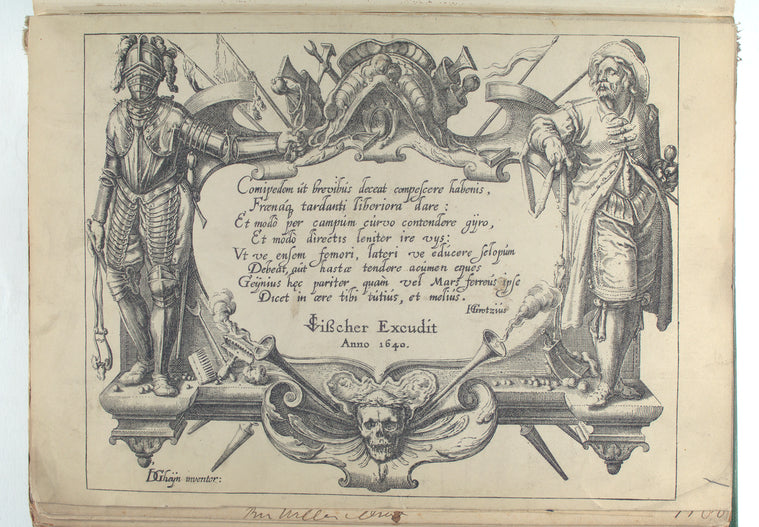 Cornipedem ut brevibus deceat compescere habenis,
Frænaq́ tardanti liboriora dare:
Et modò per campum curvo contendere gÿro,
Et modò directis leniter ire vÿs:
Vt ve ensem femori, lateri ve educere sclopum
Debeat, aut hastæ tendere acumen eques
Geÿnius hęc pariter quàm vel Mars ferreus ipse
Dicet in ære tibi tutius, et melius.
HGrotzius
Vißcher Excudit
Anno 1640.
DGheijn inventor: